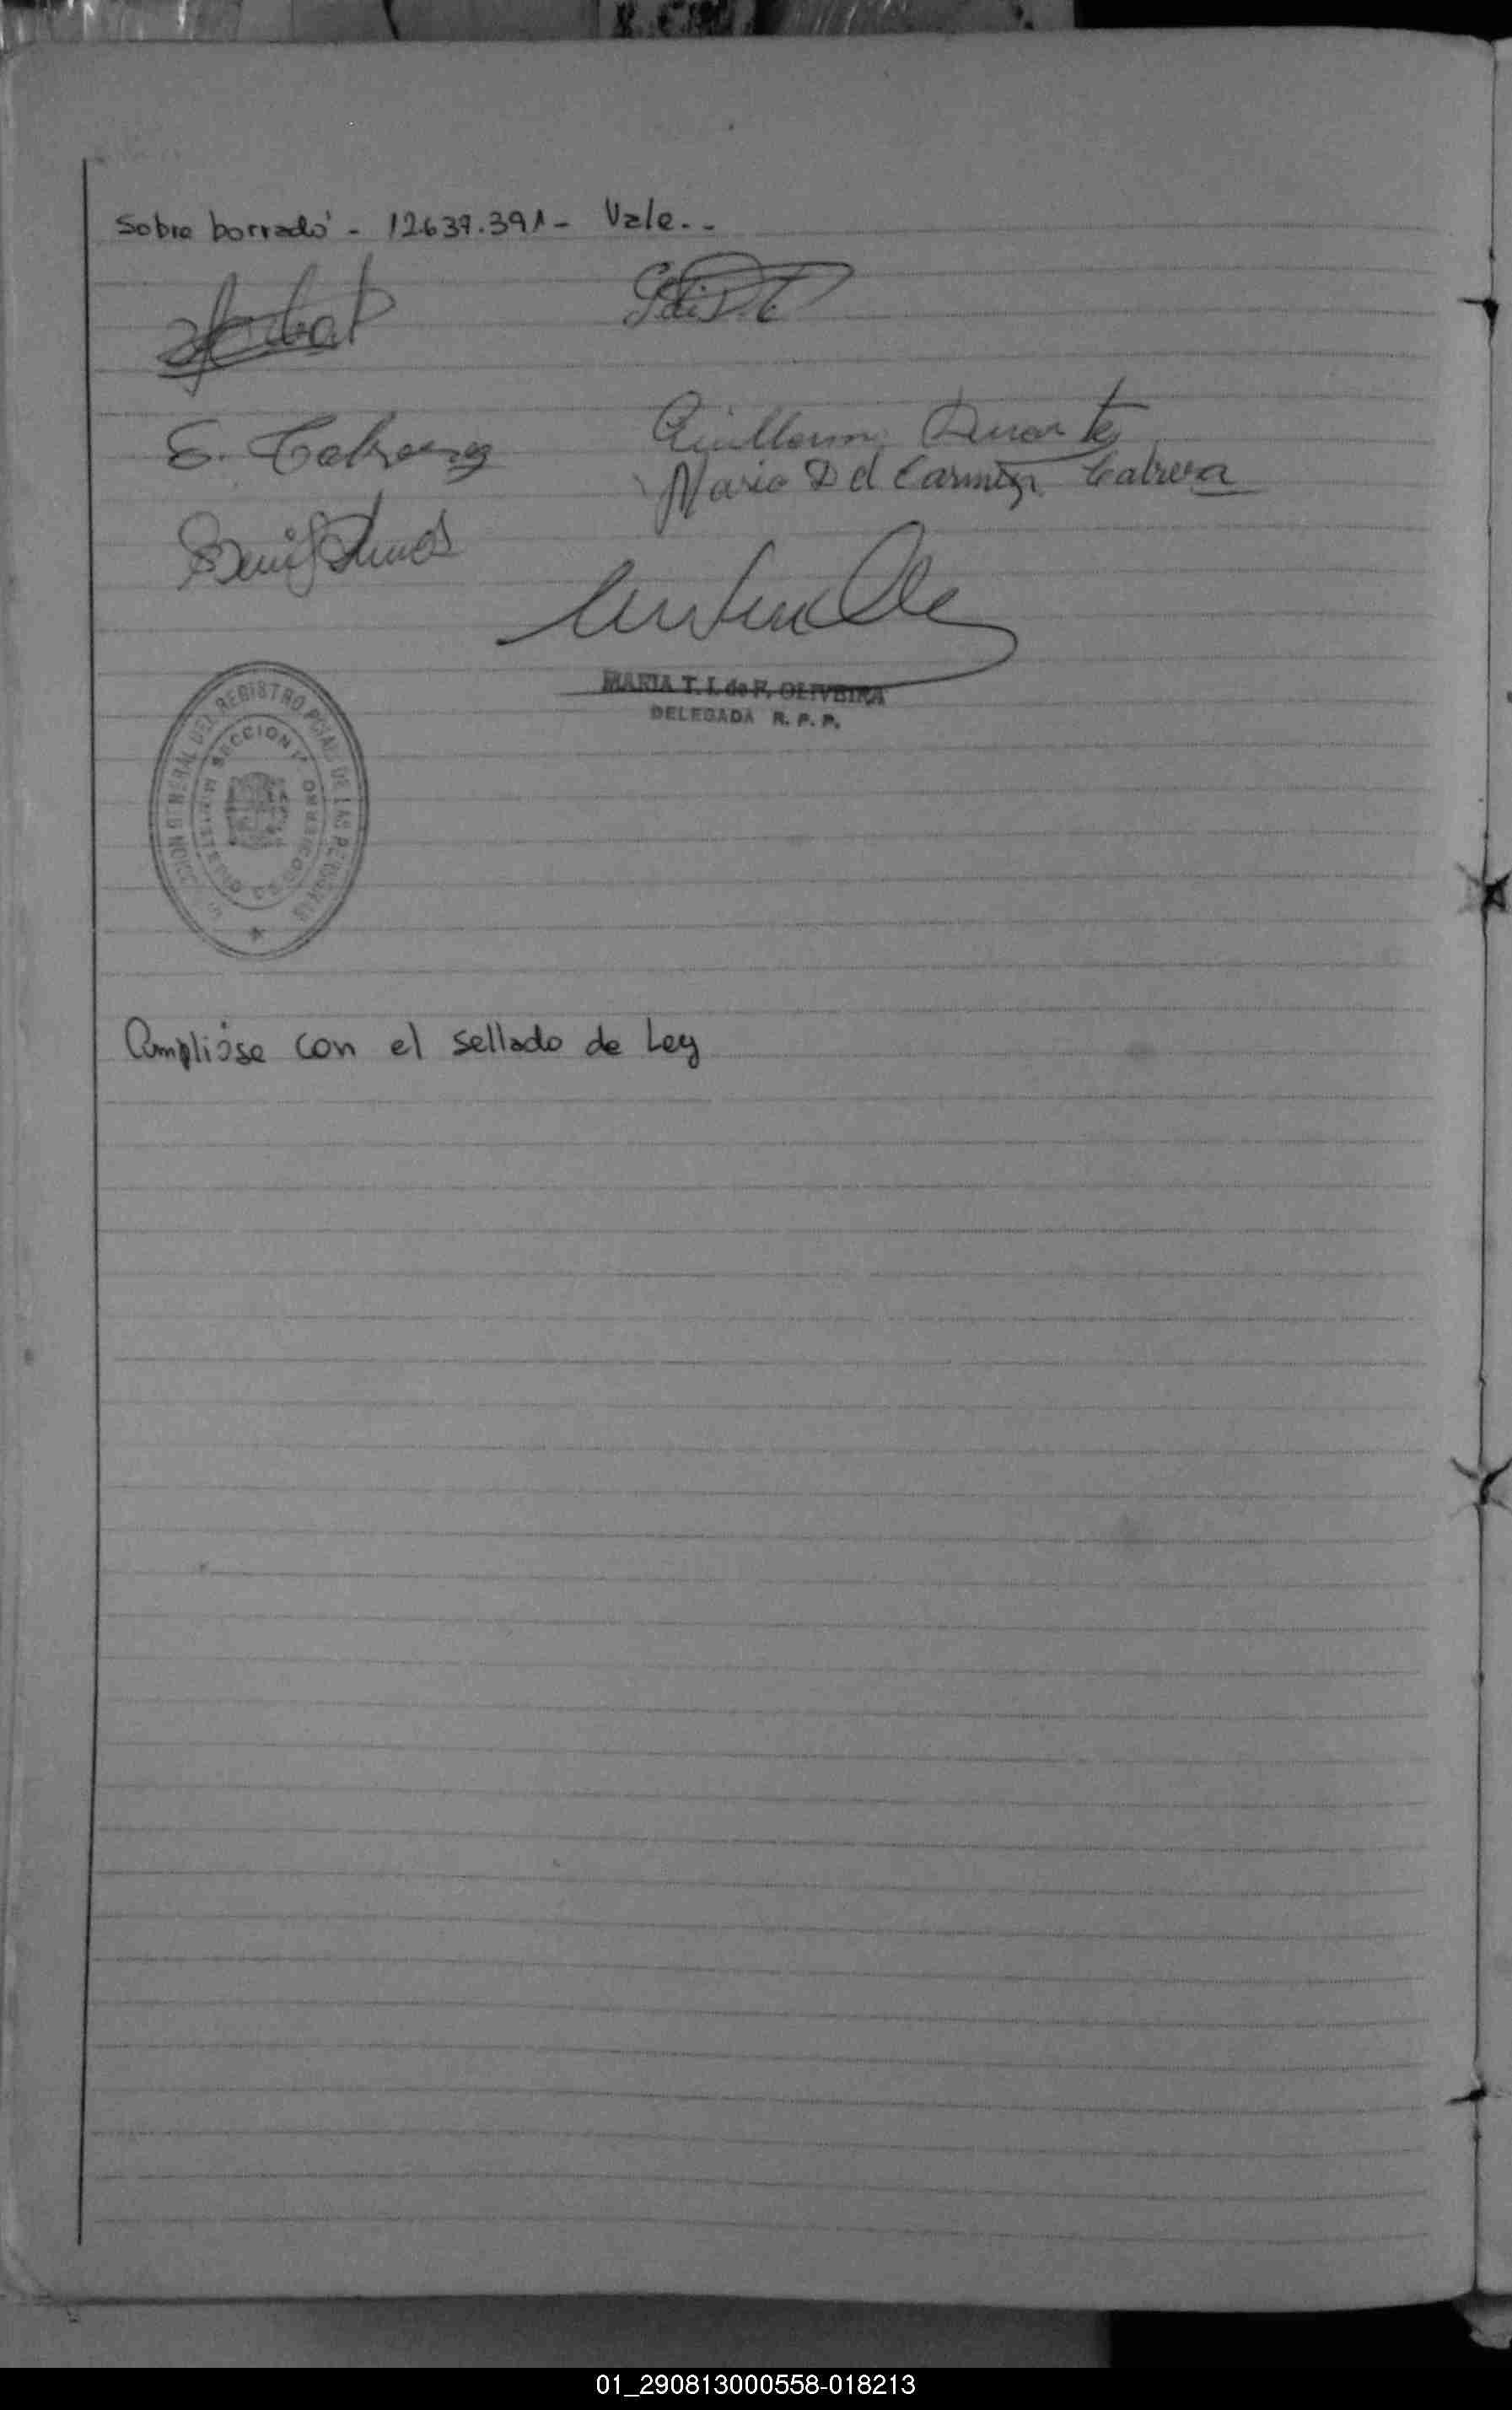 Sobre borrado - 12.639.391 - Vale..
E. Cabrera
Guillermo Duarte
Maria Del Carmen Cabrera
MARIA T. I. de F. OLIVEIRA
DELEGADA R. P. P.
GENERAL DEL REGISTRO PCIAL. DE LAS PERSONAS
SECCION
MINISTERIO DE GOBIERNO
Cumplióse con el sellado de Ley
01_290813000558-018213